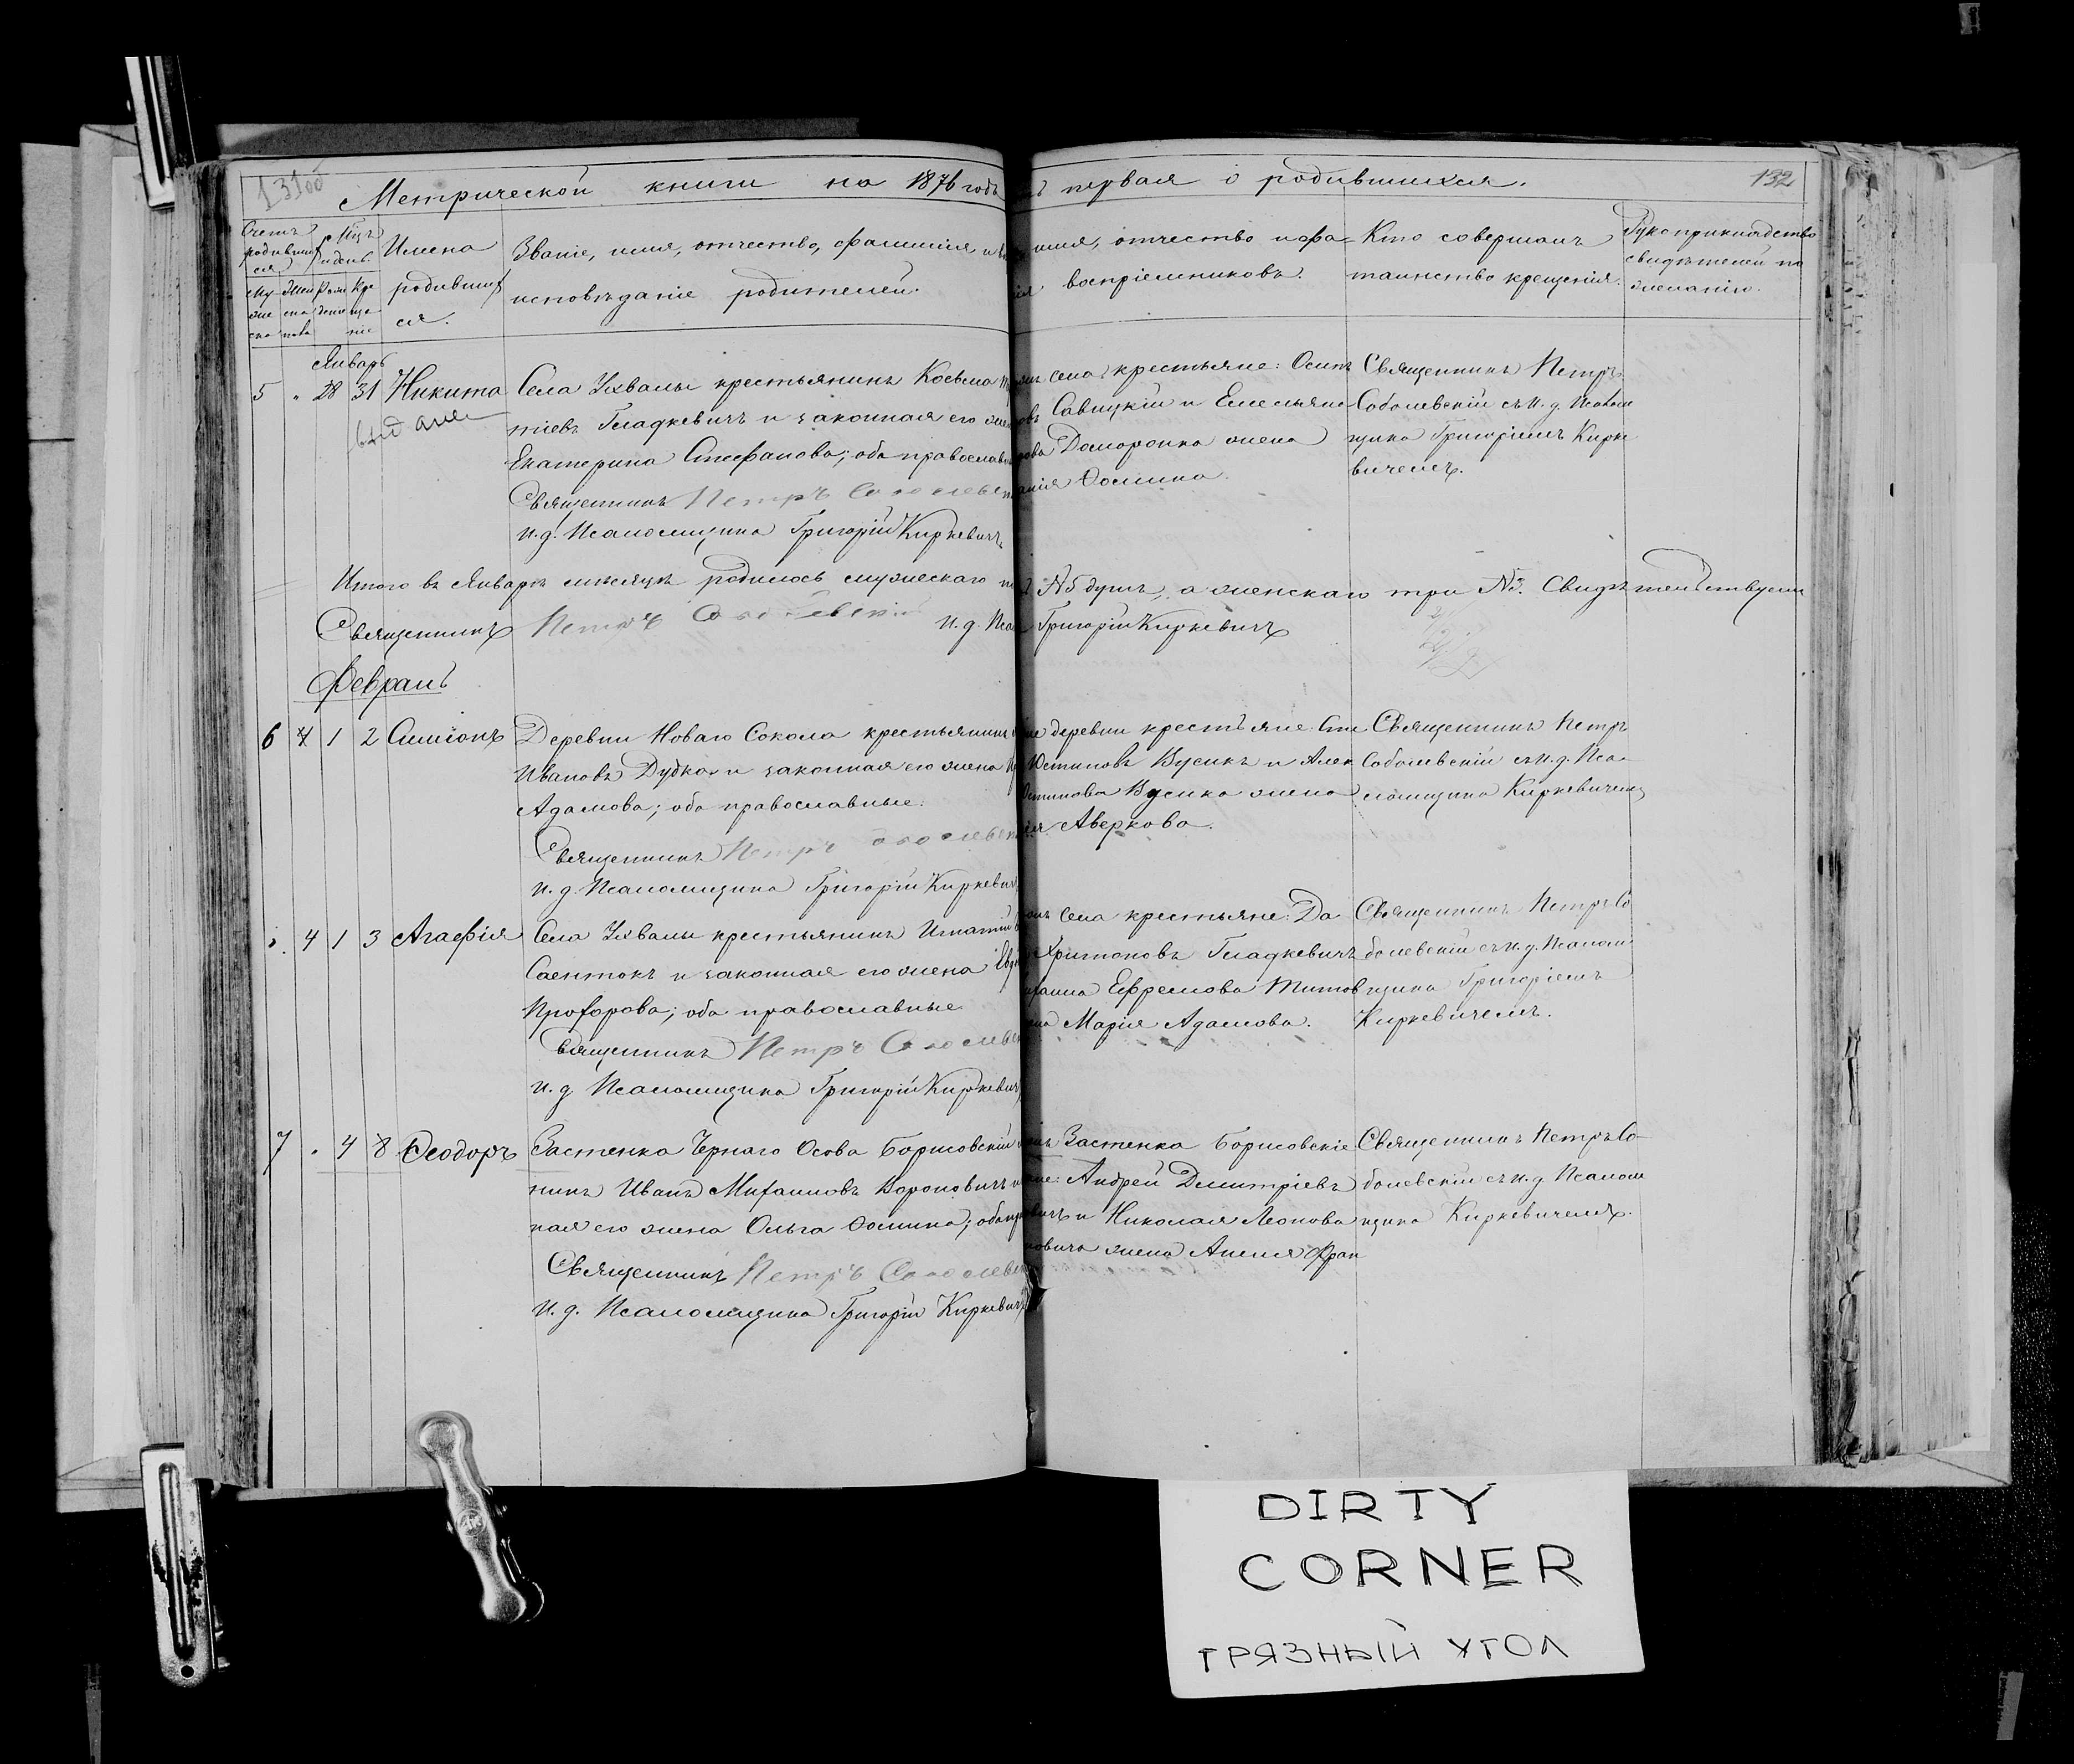 Метрической книги на 1876 годъ
первая о родившихся.
132
Счетъ родившихся
Мцъ и день
Имена родившихся.
Званіе, имя, отчество, фамилія и
исповѣданіе родителей.
имя, отчество и фа-
воспріемниковъ.
Кто совершалъ
таинство крещенія.
Рукоприкладство
свидѣтелей по
желанію.
Январь
5 28 31 Никита
Села Ухвалы крестьянинъ Косьма
тіевъ Гладкевичъ и законная его
Екатерина Стефанова; оба
Священникъ Петръ
и. д. Псаломщика Григорій Киркевичъ
села крестьяне: Осипъ
Савицкій и Емельяна
Доморонка жена
Ѳомина.
Священникъ Петръ
Соболевскій съ и. д. Псалом
щика Григоріемъ Кирке
вичемъ.
Итого въ Январѣ мѣсяцѣ родилось мужескаго
№5 душъ, а женскаго три №3. Свидѣтельствуемъ
Священникъ Петръ Соболевскій и. д.
Григорій Киркевичъ
Февраль
6 1 2 Симіонъ
Деревни Новаго Сокола крестьянинъ
Ивановъ Дудка и законная его жена
Адамова; оба православные.
Священникъ Петръ
и. д. Псаломщика Григорій Киркевичъ
деревни крестьяне: Сте
Устиновъ Бусикъ и Алек
Бусика жена
Аверкова.
Священникъ Петръ
Соболевскій съ и. д. Пса-
ломщика Киркевичемъ
4 1 3 Агафія
Села Ухвалы крестьянинъ Игнатій
и законная его жена
Прохорова; оба православные
Священникъ Петръ
и. д. Псаломщика Григорій Киркевичъ
села крестьяне: Да
Харитоновъ Гладкевичъ
Ефремова Титов
Марія Адамова.
Священникъ Петръ Со
болевскій съ и. д. Псалом
щика Григоріемъ
Киркевичемъ.
7 4 8 Ѳеодоръ
Застенка Чернаго Осова Борисовскій
нинъ Иванъ Михаиловъ Вороновичъ
ная его жена Ольга Ѳомина;
Священникъ Петръ
и. д. Псаломщика Григорій Киркевичъ
Застенка Борисовскіе
Андрей Димитріевъ
и Николая Леонова
жена Анеля Фран
Священникъ Петръ Со-
болевскій съ и. д. Псалом
щика Киркевичемъ.
DIRTY
CORNER
ГРЯЗНЫЙ УГОЛ